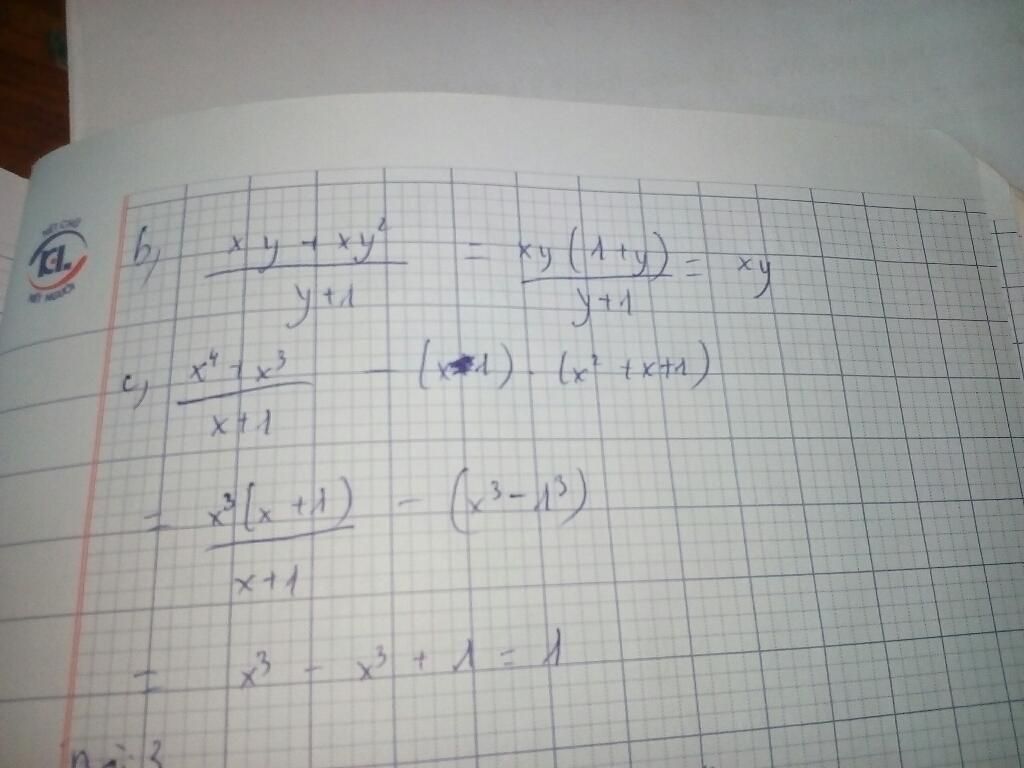 b, \frac{xy + xy^2}{y+1} = \frac{xy(1+y)}{y+1} = xy
c, \frac{x^4 + x^3}{x+1} - (x-1) \cdot (x^2 + x + 1)
= \frac{x^3(x+1)}{x+1} - (x^3 - 1^3)
= x^3 - x^3 + 1 = 1